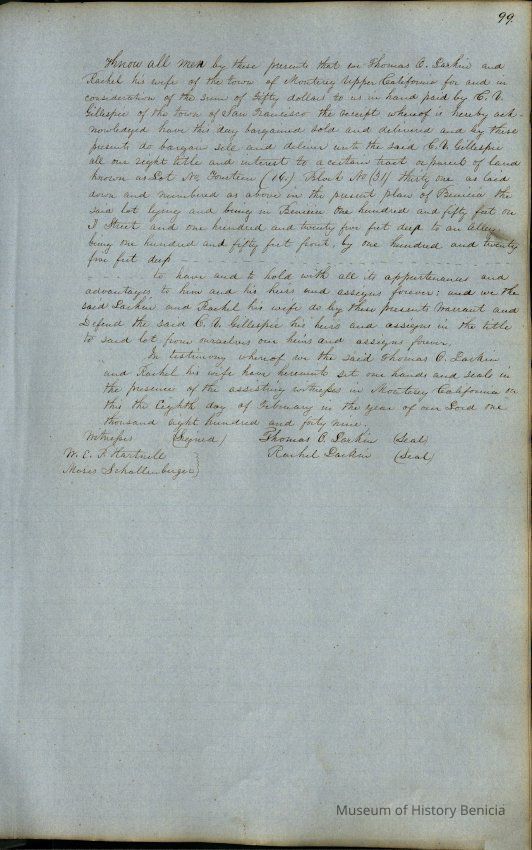 99
Know all men by these presents that we Thomas O. Larkin and
Rachel his wife of the town of Monterey Upper California for and in
consideration of the sum of Fifty dollars to us in hand paid by C. V.
Gillespie of the town of San Francisco the receipt whereof is hereby ack-
nowledged have this day bargained sold and delivered and by these
presents do bargain sell and deliver unto the said C. V. Gillespie
all our right title and interest to a certain tract or parcel of land
known as Lot No Fourteen (14.) Block No (31) thirty one as laid
down and numbered as above in the present plan of Benicia the
said lot lying and being in Benicia One hundred and fifty feet on
I Street and one hundred and twenty five feet deep to an alley
being one hundred and fifty feet front, by one hundred and twenty
five feet deep
to have and to hold with all its appurtenances and
advantages to him and his heirs and assigns forever; and we the
said Larkin and Rachel his wife do by these presents warrant and
Defend the said C. V. Gillespie his heirs and assigns in the title
to said lot from ourselves our heirs and assigns forever.
In testimony whereof we the said Thomas O. Larkin
and Rachel his wife have hereunto set our hands and seals in
the presence of the assisting witnesses in Monterey California on
this the Eighth day of February in the year of our Lord one
thousand eight hundred and forty nine.
Witnesses (Signed) Thomas O. Larkin (Seal)
W. E. P. Hartnell Rachel Larkin (Seal)
Moses Schallenberger
Museum of History Benicia